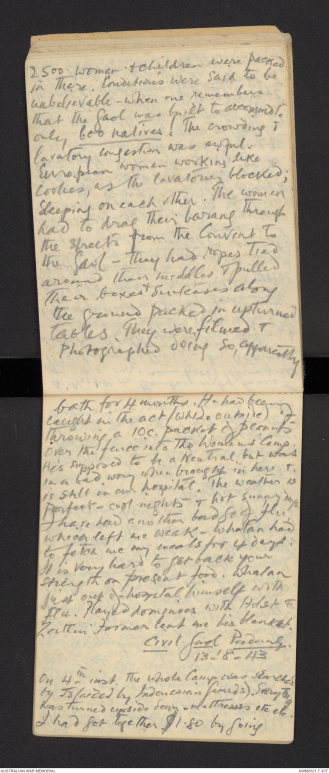 2500 women & children were packed
in there. Conditions were said to be
unbelievable - when one remembers
that the Gaol was built to accomodate
only 600 natives. The crowding &
lavatory congestion was awful.
European women working like
coolies, as the lavatories blocked,
sleeping on each other. The women
had to drag their barang through
the streets from the Convent to
the Gaol - they had ropes tied
around their middles & pulled
their boxes & suitcases along
the ground packed in upturned
tables. They were filmed &
photographed doing so, apparently
bath for 4 months. He had been
caught in the act (while outside) of
throwing a 10c. packet of peanuts
over the fence into the Womens Camp.
He's supposed to be a Neutral, but was
in a bad way when brought in here &
is still in our hospital. The weather is
perfect - cool nights & hot sunny days
I have had another badge of flu
which left me weak - Whelan had
to fetch me my meals for 4 days.
It is very hard to get back your
strength on present food. Whelan
just out of hospital himself with
flu. Played dominoes with Holst &
former lent me his blanket.
Civil Gaol
13-8-43
On 4th inst. the whole Camp was searched
by Js (aided by Indonesian Guards). Everything
was turned upside down, mattresses etc etc.
I had got together $1.80 by going
AUSTRALIAN WAR MEMORIAL